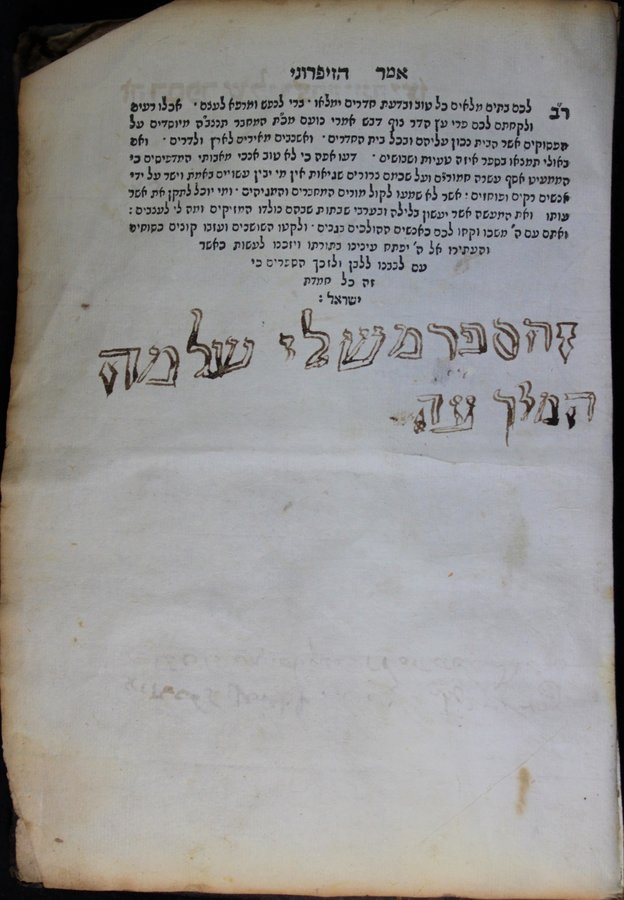 אמר הזיפרוני
רב לכם בתים מלאים כל טוב ובדעת חדרים ימלאו · ברי לנפש ומרפא לעצם · אכלו רעים
ולקחתם לכם פרי עץ הדר נוף דבש אמרי נועם מב"ת המחבר מיוסדים על
הפסוקים אשר הבית נכון עליהם ובכל בית החדרים · ואשנבים מאירים לארץ ולדרים · ואם
באולי תמצאו בספר איזה טעיות ושבושים · דעו איפה כי לא טוב אנכי מאבותי המדפיסים כי
הממעיט אסף עשרה חמורים ועל שכיום ברורים שגיאות אין מי יבין עשויים באמת וישר על ידי
אנשים רקים ופוחזים · אשר לא שמעו לקול מורים המחברים והמגיהים · ומי יוכל לתקן את אשר
עותו ואת המעשה אשר יעשון בלילה ובערבי שבתות שבהם נולדו המזיקים ומה לי לעצבים :
ואתם עם ה' משכו וקחו לכם כאנשים ההולכים בנגב · ולקטו השושנים ועזבו קונים
והעתירו אל ה' יפתח עינינו בתורתו ויזכנו לעשות כאשר
עם לבבנו ללבן ולזכך הספרים כי
זה כל חמדת
ישראל :
זה ספר משלי שלמה
המלך עה